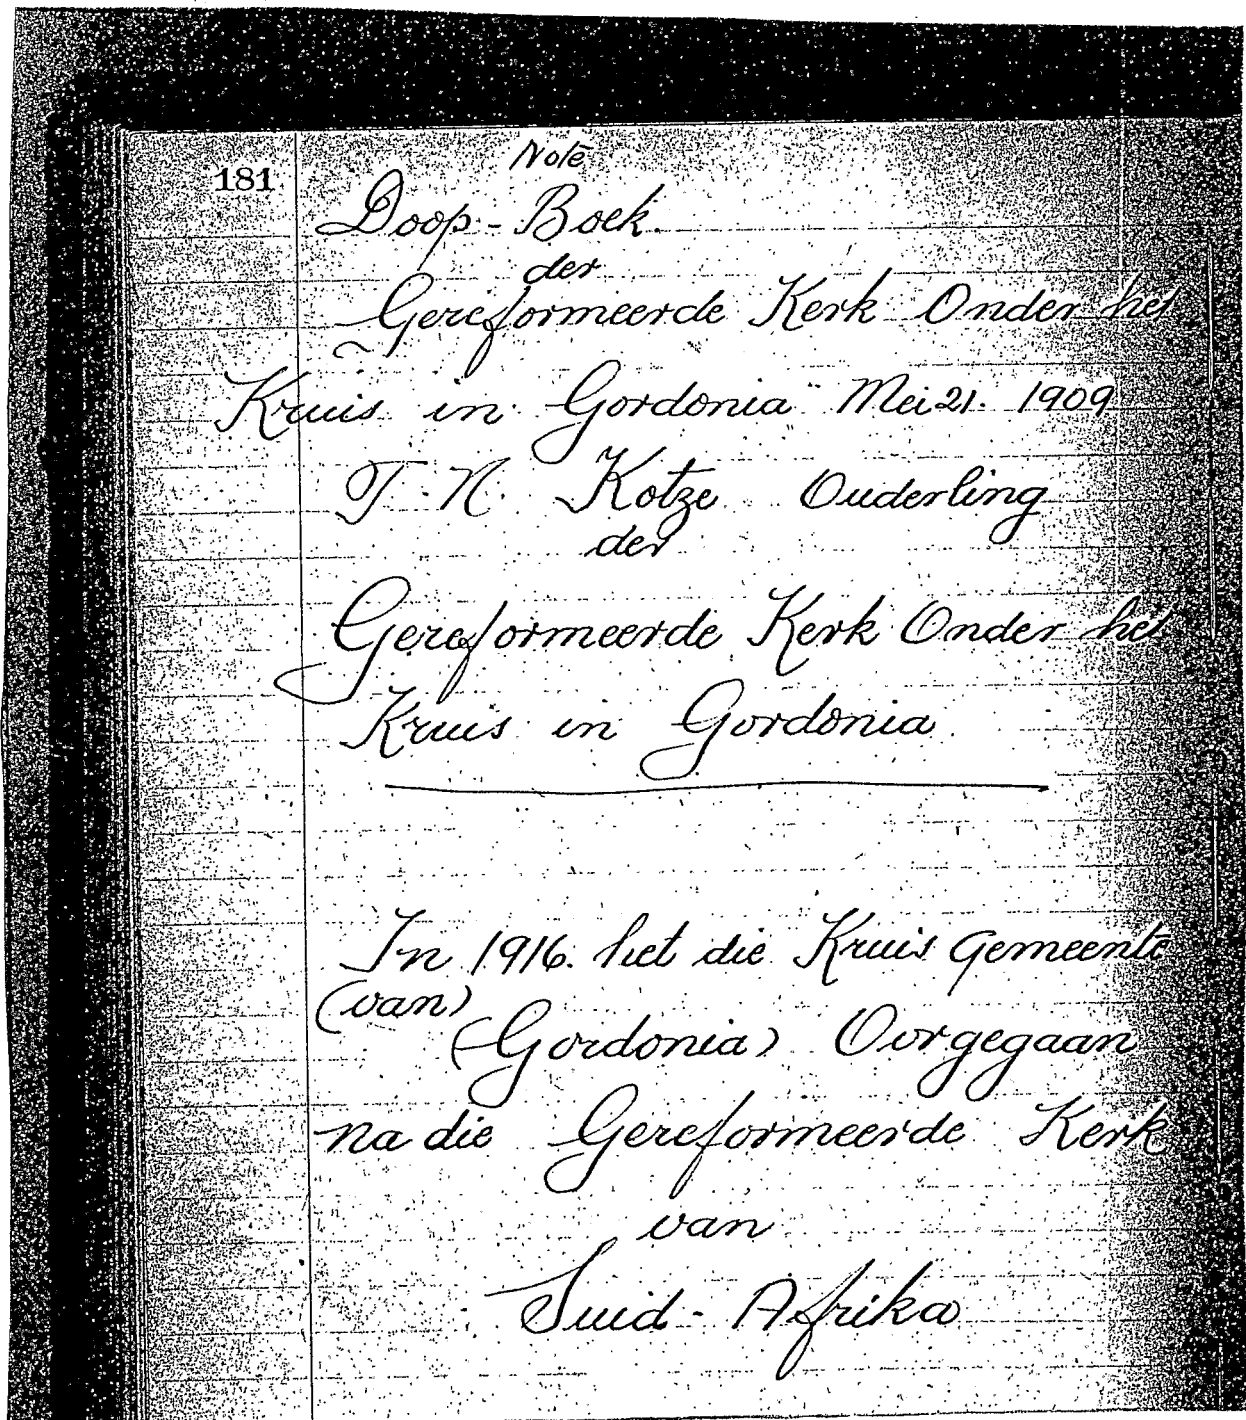 Note
181
Doop - Boek.
der
Gereformeerde Kerk Onder het
Kruis in Gordonia Mei 21. 1909
T. N. Kotze Ouderling
der
Gereformeerde Kerk Onder het
Kruis in Gordonia
In 1916. het die Kruis Gemeente
(van)
(Gordonia) Oorgegaan
na die Gereformeerde Kerk
van
Suid - Afrika